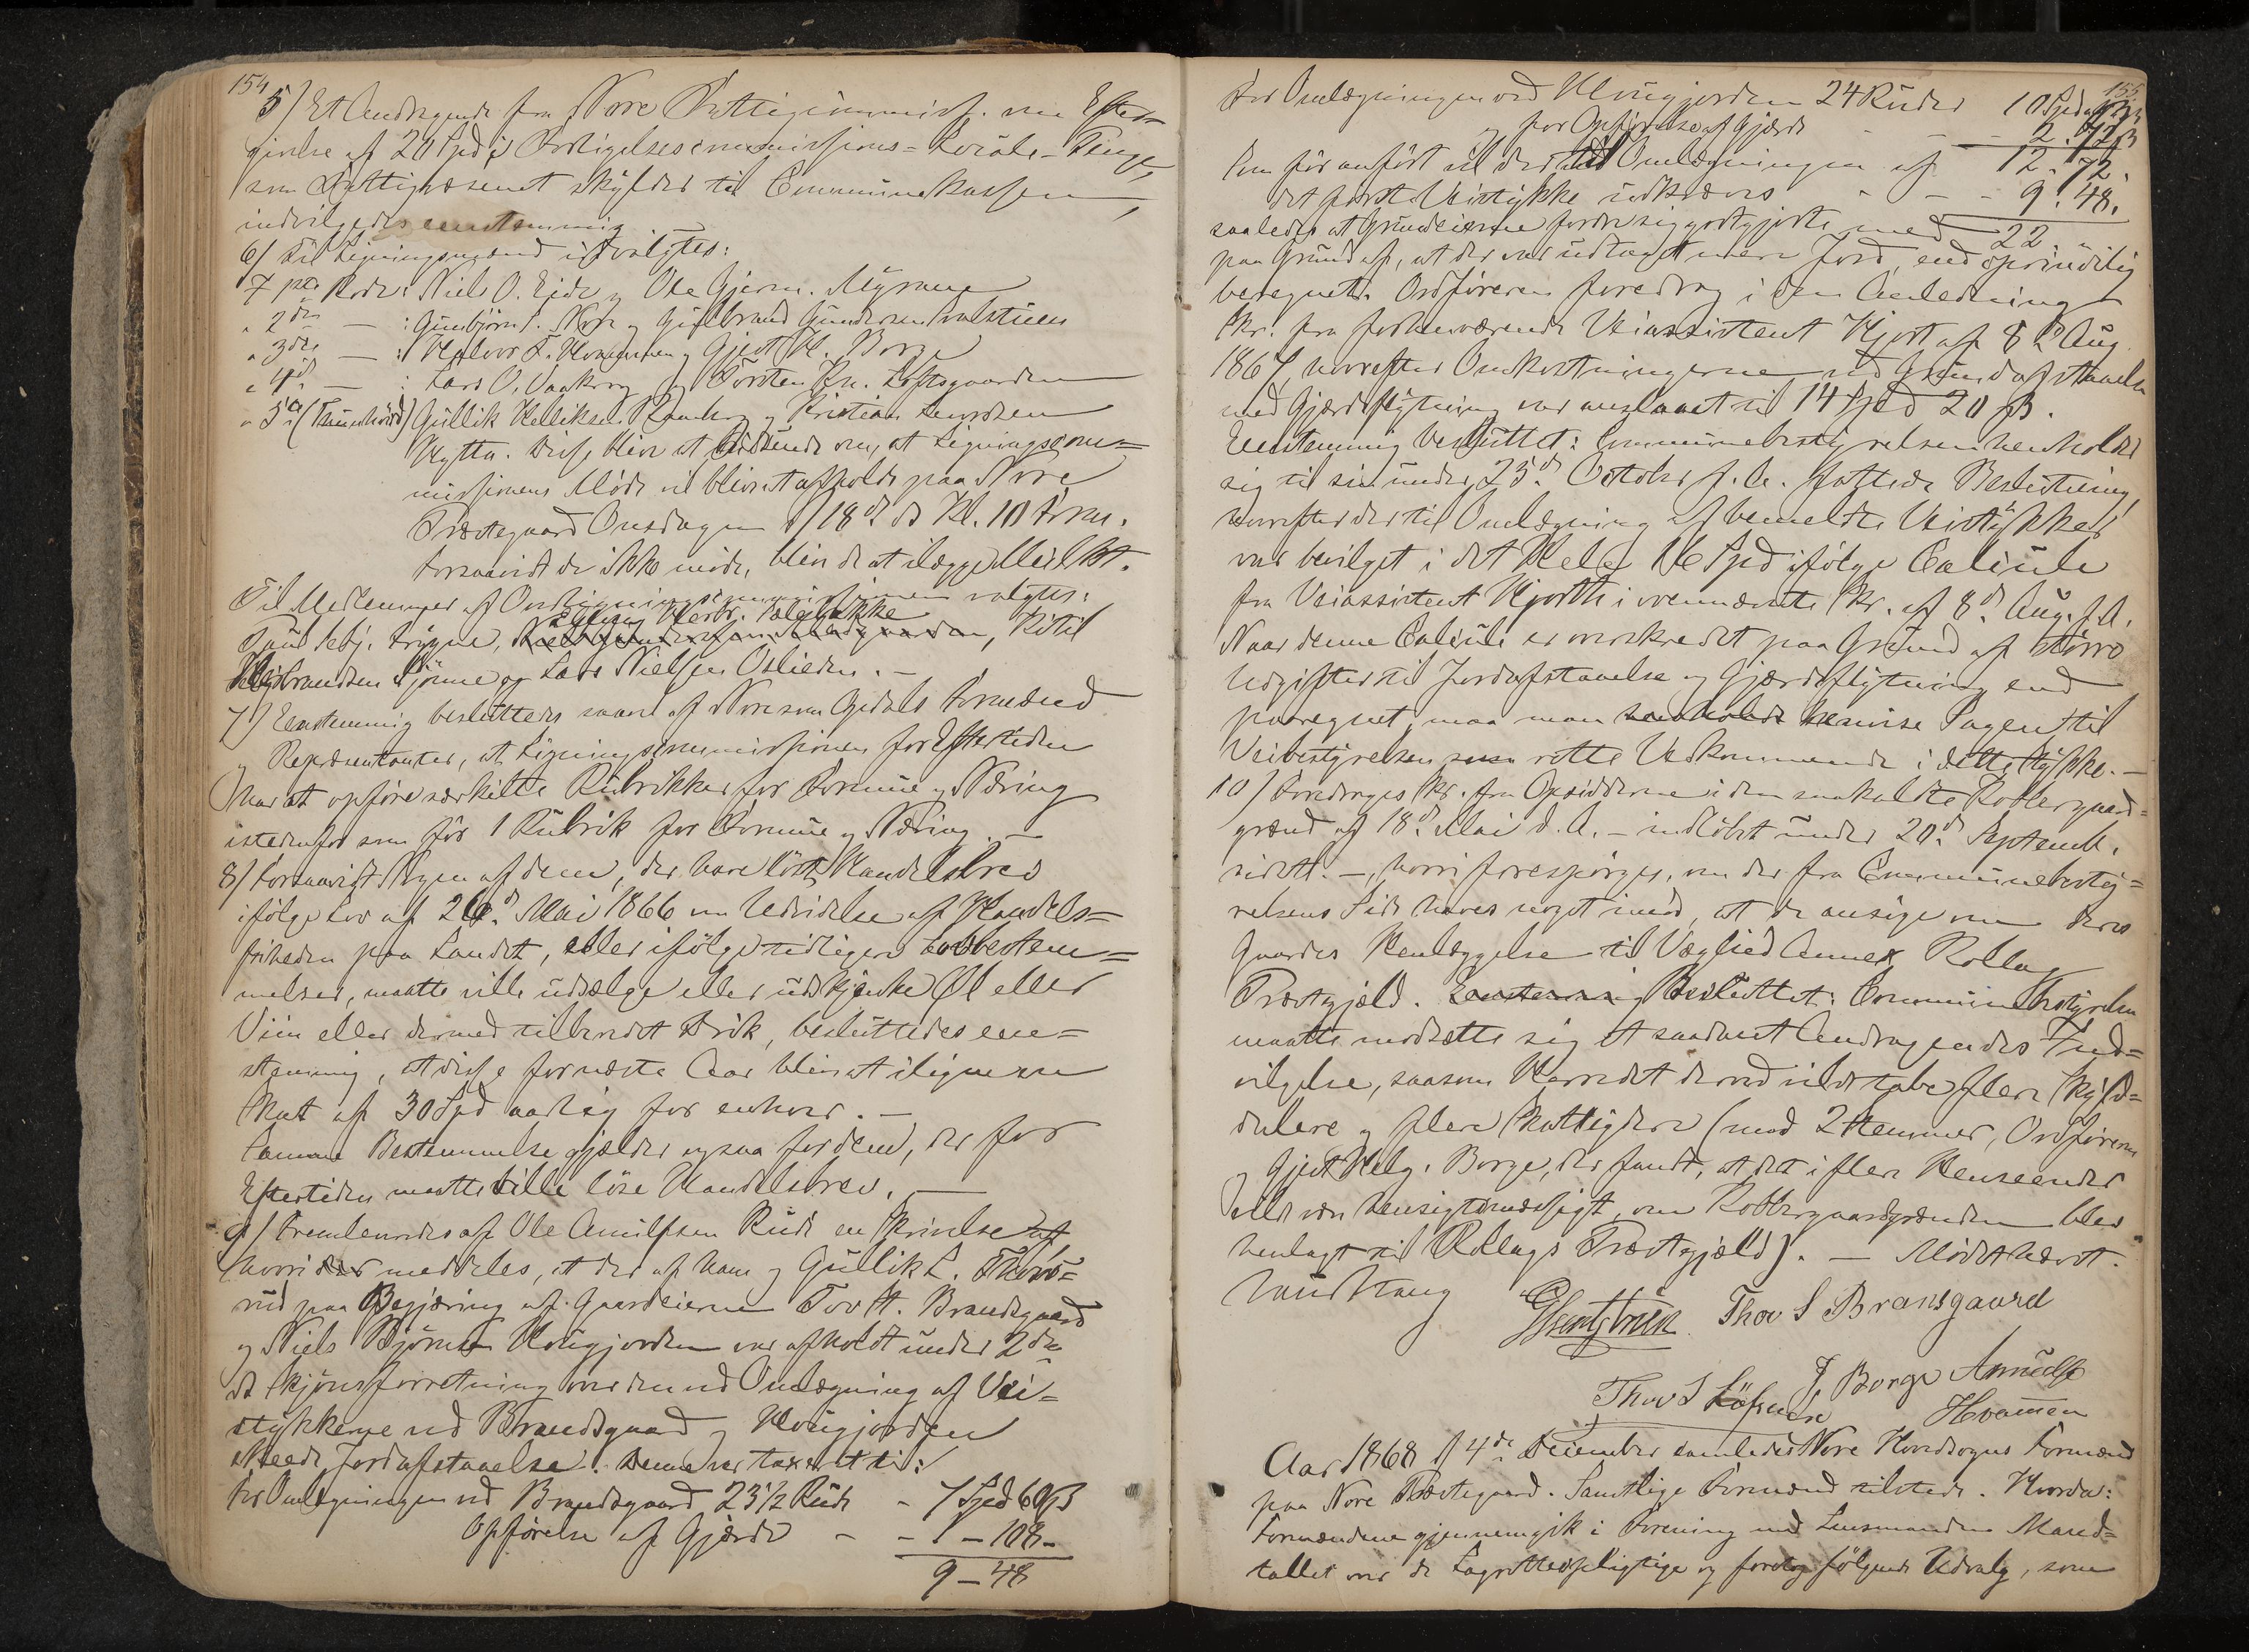 154
5) Et Andragende fra Nore Fattigcommiss. om Efter=
givelse af 20 Spd i Forligelsescommissions=Locale-Penge,
som Fattigvæsenet skylder til Communekassen,
indvilgedes eenstemmig
6) Til Ligningsmænd udvalgtes:
Rode: Niels O. Eide og Ole Gjerm. Myrane
" 2den — : Gunbjørn S. og Gulbrand Gundersen
" 3die — : Halvor T. og Gjest H. Borge
" 4de — : Lars O. Vaakrog og Torsten Kn. Løftsgaarden
" 5te Gullik Helliksen og Kristian
Hytta. Disse blive at om, at Ligningscom=
missionens Møde vil blive at afholde paa Nore
Præstegaard Onsdagen d/18de ds Kl. 10 Form.
Forsaavidt de ikke møde, blive de at ilægge Mulkt.
Til Medlemmer af Overligningscommissionen valgtes:
Paul Sebj. Trygne, Kittil
Gulbrandsen Sjønne og Lars Nielsen Oslieden. —
7) Eenstemmig besluttedes saavel af Nore som Opdals Formænd
og Repræsentanter, at Ligningscommissionen for Eftertiden
har at opføre særskilte Rubrikker for Formue og Næring
istedenfor som før 1 Rubrik for Formue og Næring. —
8) Forsaavidt Nogen af dem, der have løst Handelsbrev
ifølge Lov af 26d Mai 1866 om Udvidelse af Handels=
friheden paa Landet, eller ifølge tidligere Lovbestem=
melser, maatte ville udsælge eller udskjænke Øl eller
Viin eller dermed tilberedt Drik, besluttedes een=
stemmig, at disse for næste Aar bliver at iligne en
Skat af 30 Spd aarlig for enhver. —
Samme Bestemmelse gjælder ogsaa for dem, der for
Eftertiden maatte ville løse Handelsbrev. —
9) Fremlevredes af Ole Arnulfsen Rude en Skrivelse af
hvori der meddeles, at der af ham og Gullik L.
rud paa Begjæring af Gaardeierne Tov H. Brandsgaard
og Niels Bjørnsen Hougjorden var afholdt under 2den
ds Skjønsforretning over den ved Omlægning af Vei=
stykkerne ved Brandsgaard og Hougjorden
skeede Jordafstaaelse. Denne var taxeret til:
For Omlægningen ved Brandsgaard 23½ Rude - 7 Spd 60 ß
Opførelse af Gjærde - - 1 - 108 -
9 - 48
155
For Omlægningen ved Hougjorden 24 Ruder 10 Spd
og for Opførelse af Gjærde - - - 2. 72 ß
Som før anført vil der til Omlægningen af 12. 72.
det første Veistykke udkræves - - - 9. 48.
saaledes at Grundeierne fordre sig godtgjorte med 22
paa Grund af, at der var udtaget mere Jord, end oprindelig
beregnet. Ordføreren foredrog i den Anledning
Skr. fra forhenværende Veiassistent Hjort af 8d Aug.
1867, hvorefter Omkostningerne ved Grundafstaaelse
med Gjærdeflytning var anslaaet til 14 Spd 20 ß.
Eenstemmig besluttet: Communebestyrelsen henholder
sig til sin under 25d October f. A. fattede Beslutning,
hvorefter der til Omlægning af bemeldte Veistykker
var bevilget i det Hele Spd ifølge Calcule
fra Veiassistent Hjorth i ovennævnte Skr. af 8d Aug. f. A.
Naar denne Calcule er overskredet paa Grund af større
Udgifter til Jordafstaaelse og Gjærdeflytning end
paaregnet, maa man henvise Sagen til
Veibestyrelsen som rette Vedkommende i dette Stykke. —
10) Foredroges Skr. fra Opsidderne i den saakaldte Robbergaard=
grænd af 18d Mai d. A. — indløbet under 20d Septemb.
sidstl. —, hvori forespørges, om der fra Communebesty=
relsens Side haves noget imod, at de ansøge om deres
Gaardes Henlæggelse til Væglied Annex, Rollag
Præstegjæld. Eenstemmig Besluttet: Communebestyrelsen
maatte modsætte sig et saadant Andragendes Ind=
vilgelse, saasom Herredet derved vilde tabe flere Skyld=
dalere og flere Skatteydere (mod 2 Stemmer, Ordføreren
og Gjest Helg. Borge, der fandt, at det i flere Henseender
vilde være hensigtsmæssigt, om Robbergaardgrænden blev
henlagt til Rollags Præstegjæld). — Mødet hævet.
Thov S Bransgaard
G. Borge Arnulf
Thov S
Hvammen
Aar 1868 d/ 4de December samledes Nore Hovedsogns Formænd
paa Nore Præstegaard. Samtlige Formænd tilstede. Hvorda:
Formændene gjennemgik i Forening med Lensmanden Mand=
tallet over de Lagrettespligtige og foretog følgende Udvalg, som